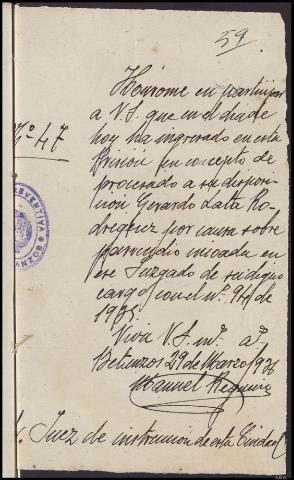 59
Hónrome en participar
a V.S. que en el dia de
hoy ha ingresado en esta
Nº. 47
Prision en concepto de
procesado a su disposi-
cion Gerardo Lata Ro-
driguez por causa sobre
parricidio iniciada en
ese Juzgado de su digno
cargo con el nº. de
1935.
Viva V.S. mº. aº.
Betanzos 29 de Marzo 1936
Manuel
PREVENTIVA
Juez de instruccion de esta Ciudad